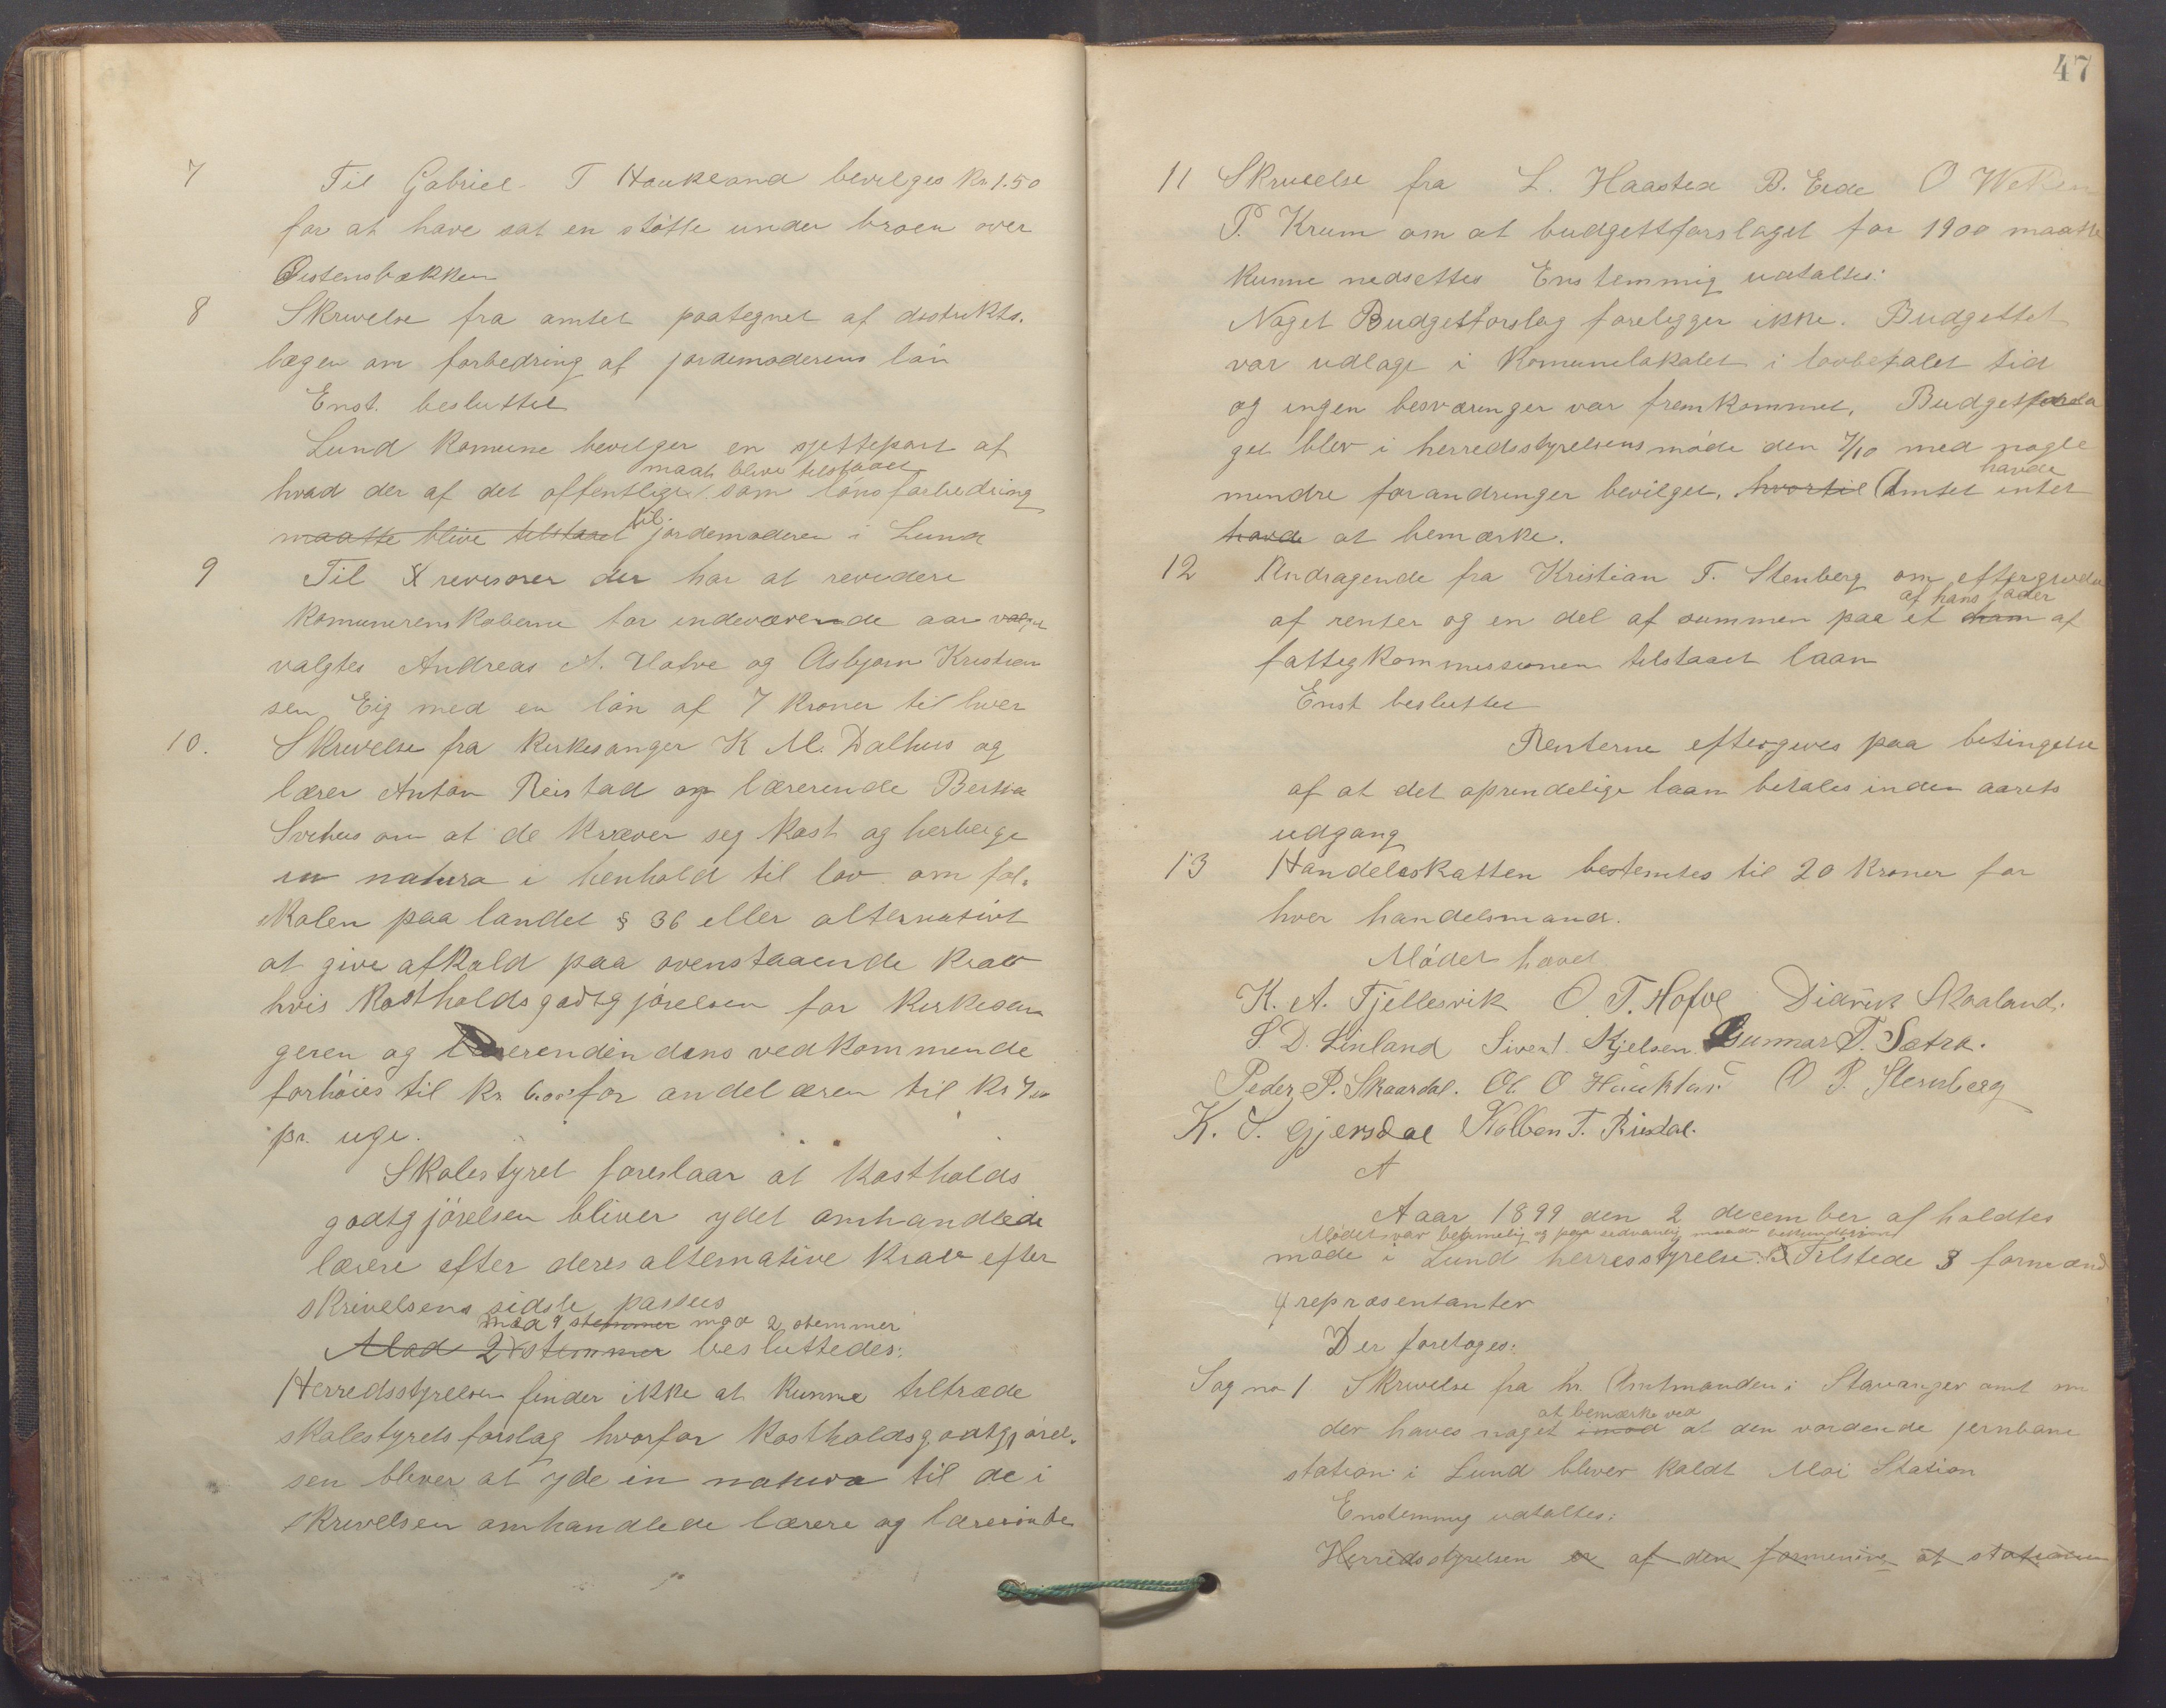 7 Til Gabriel T Haukland bevilges Kr 1.50
for at have sat en støtte under broen over
Østensbækken
8 Skrivelse fra amtet paategnet af distrikts.
lægen om forbedring af jordemoderens løn
Enst. besluttet
Lund Komune bevilger en sjettepart af
maatte blive tilstaaet
hvad der af det offentlige som lønsforbedring
maatte blive tilstaaet til jordemoderen i Lund
9 Til revisorer der har at revidere
Komuneregnskaberne for indeværende aar
valgtes Andreas A. Hofve og Asbjørn Kristian
sen Eig med en løn af 7 Kroner til hver
10. Skrivelse fra Kirkesanger K M. Dalhus og
lærer Anton Reistad og lærerinde Bertha
Svehus om at de kræver seg kost og herberge
in natura i henhold til lov om fol.
skolen paa landet § 36 eller alternativt
at give afkald paa ovenstaaende krav
hvis Kostholdsgodtgjørelsen for Kirkesan
geren og lærerinden dens vedkommende
forhøies til Kr 6.00 for andel æren til Kr 7 00
pr. uge.
Skolestyret foreslaar at Kostholds
godtgjørelsen bliver ydet omhandlede
lærere efter deres alternative Krav efter
skrivelsens sidste passus
med 9 stemmer mod 2 stemmer
Mod 2 stemmer besluttedes:
Herredsstyrelsen finder ikke at kunne tiltræde
skolestyrets forslag hvorfor Kostholdsgodtgjørel.
sen bliver at yde in natura til de i
skrivelsen omhandlede lærere og lærerinde
47
11 Skrivelse fra L. Haasted B. Eide O Weken
P. Krum om at budgettforslaget for 1900 maatte
kunne nedsættes Enstemmig udtaltes:
Noget Budgetforslag foreligger ikke. Budgettet
var udlagt i Komunelokalet i lovbefalet tid
og ingen besværinger var fremkommet. Budgetforsla
get blev i herredsstyrelsens møde den 7/10 med nogle
havde
mindre forandringer bevilget. hvortil Amtet intet
havde at bemærke.
12 Andragende fra Kristian T. Stenberg om eftergivelse
af hans fader
af renter og en del af summen paa et ham af
fattigkommissionen tilstaaet laan
Enst besluttet
Renterne eftergives paa betingelse
af at det oprindelige laan betales inden aarets
udgang
13 Handelsskatten bestemtes til 20 Kroner for
hver handelsmand.
Mødet hævet
K. A. Fjellesvik O. T. Hofve Didrik Skaaland.
S. D. Linland Sivert Kjelsen. Gunnar T. Sætra.
Peder P. Skaardal. Ol O Haukland O P. Stenberg
K. S. Gjersdal Kolben T. Risdal.
A
Aaar 1899 den 2 december afholdtes
Mødet var betimelig og paa sedvanlig maade bekjendtgjort
møde i Lund herredsstyrelse. Tilstede 3 formænd
4 repræsentanter
Der foretoges:
Sag no 1 Skrivelse fra hr. Amtmanden i Stavanger amt om
at bemærke ved
der haves noget imod at den vordende jernbane
station i Lund bliver kaldt Moi Station
Enstemmig udtaltes:
Herredsstyrelsen er af den formening at stationen